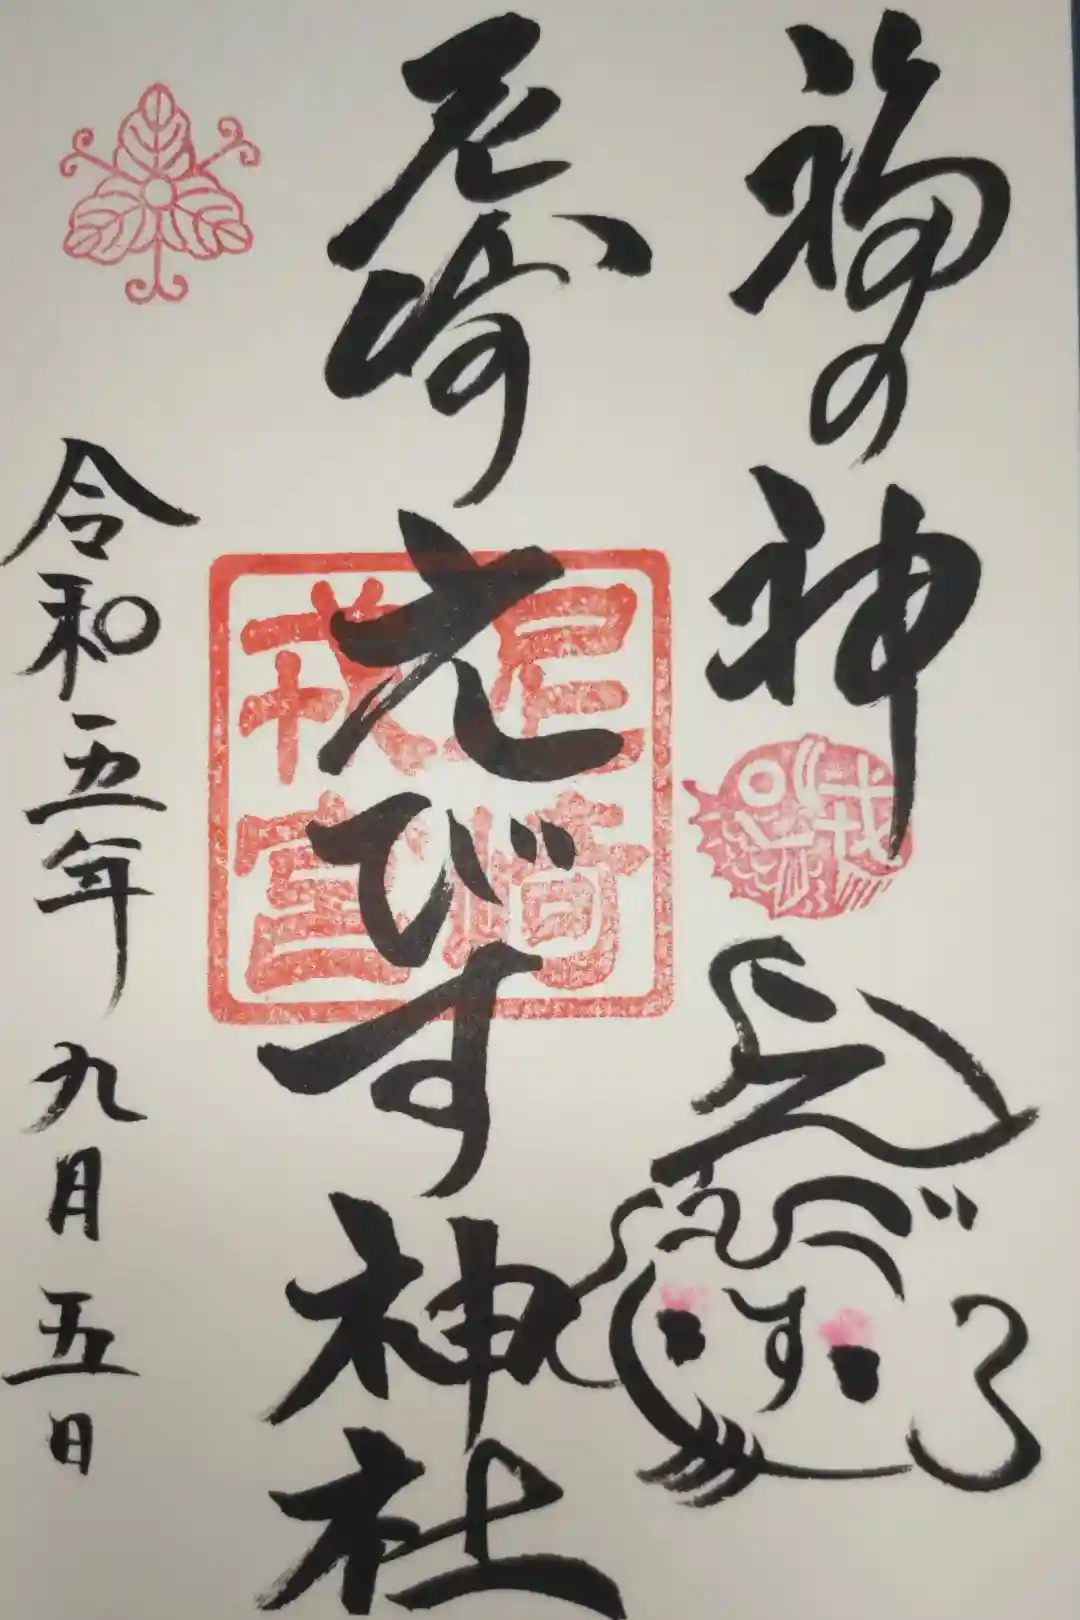 福の神
えびす
戎
尼崎えびす神社
尼崎
戎宮
令和五年九月五日